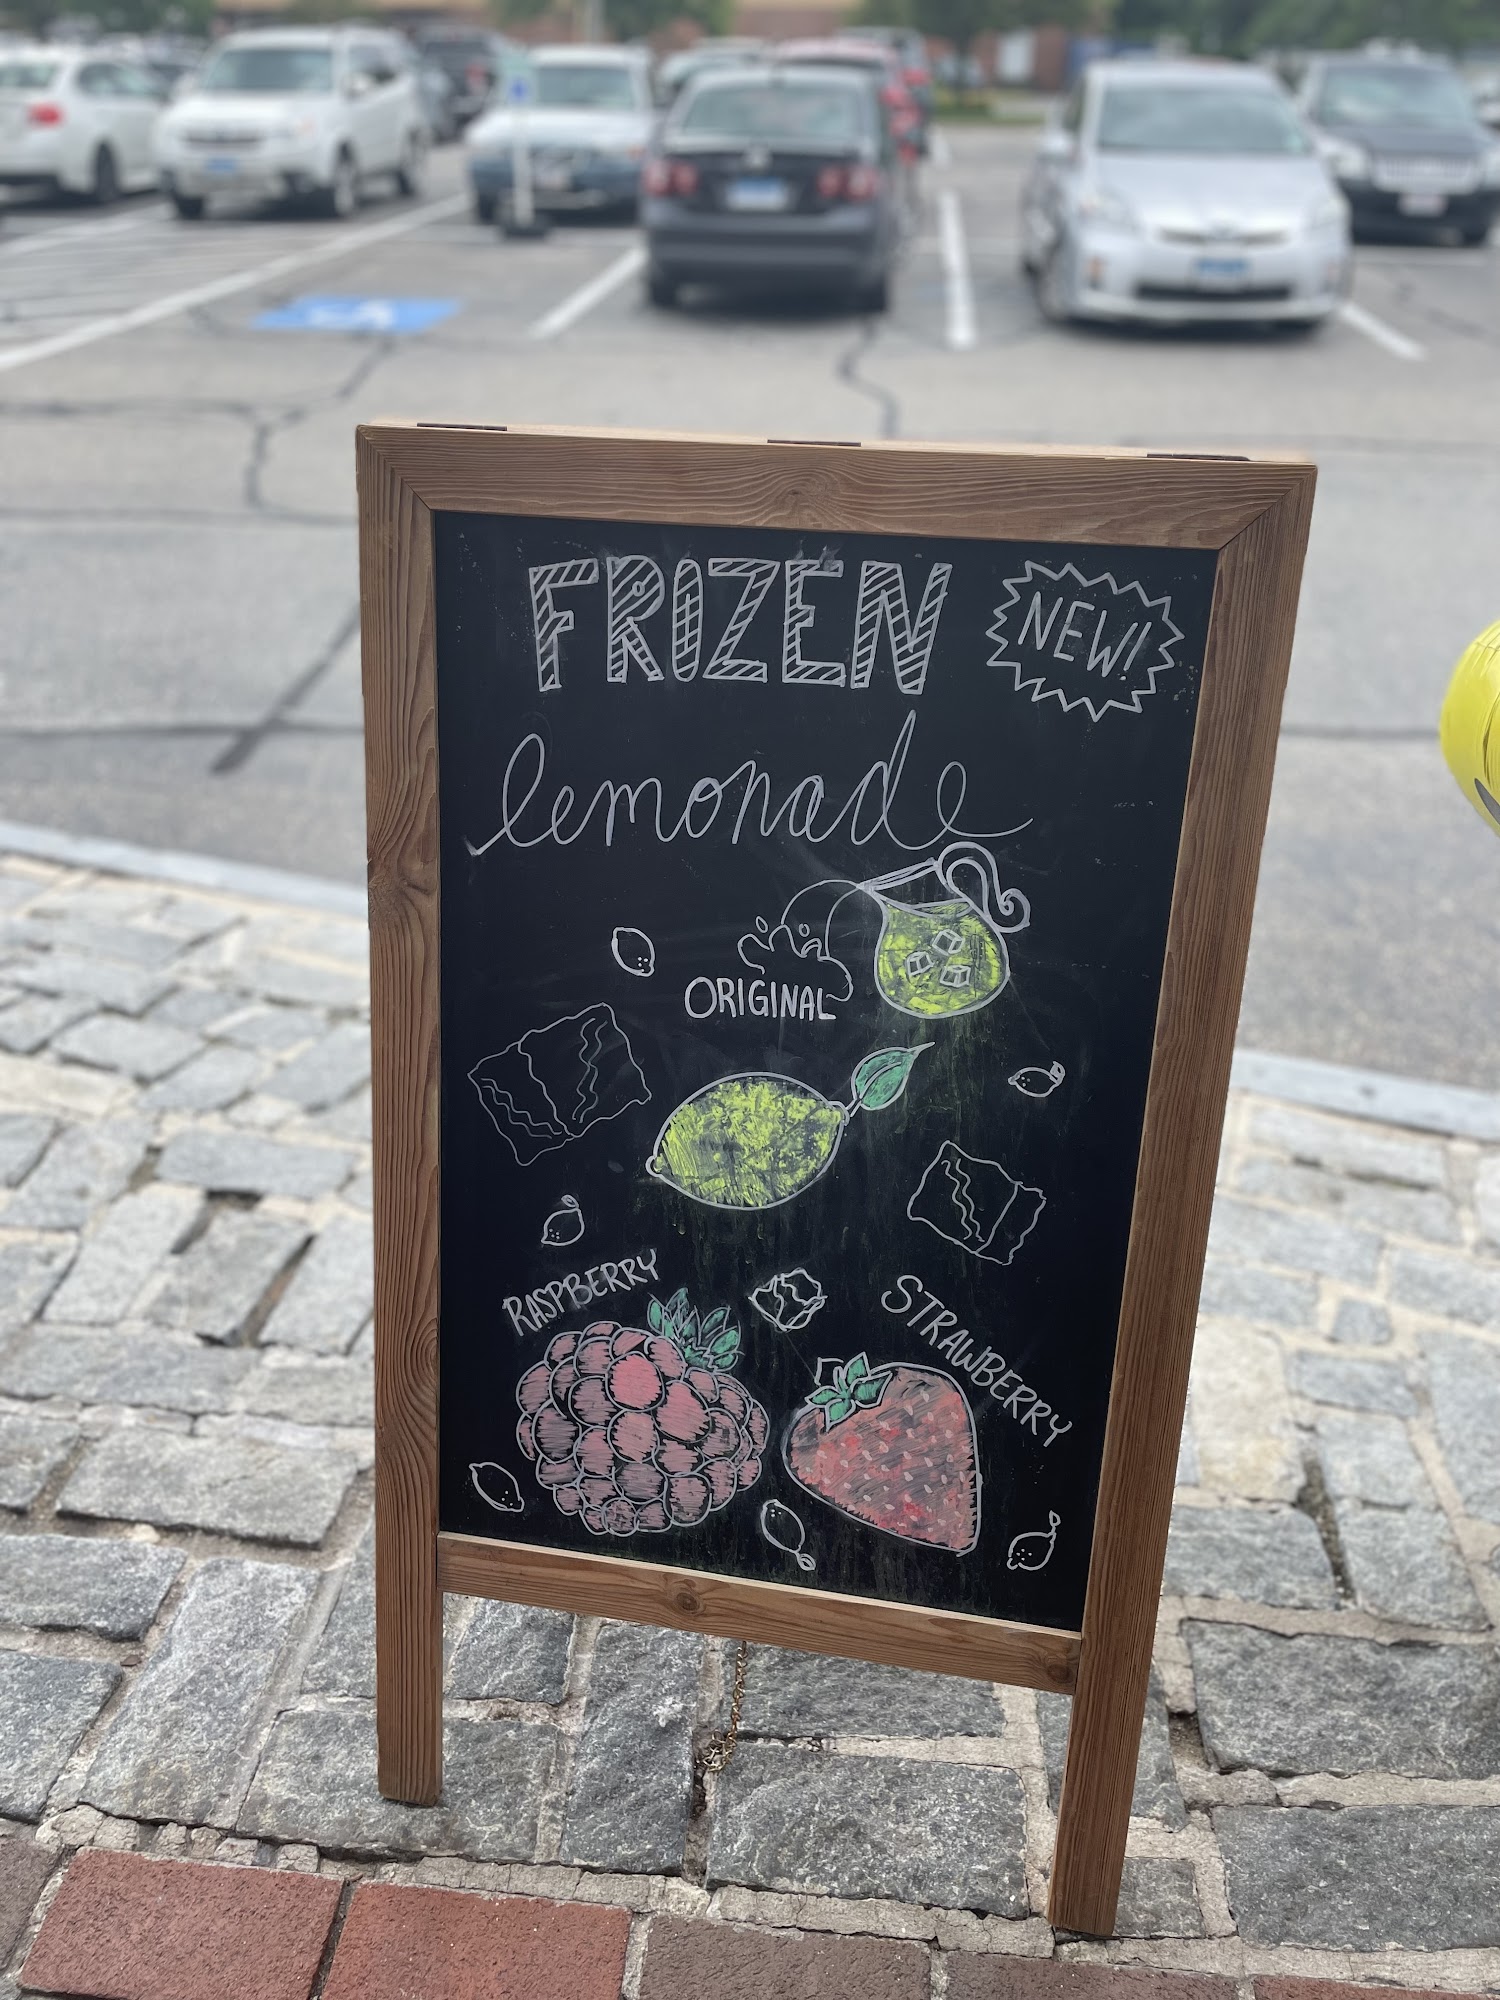 FROZEN
NEW!
lemonade
ORIGINAL
RASPBERRY
STRAWBERRY